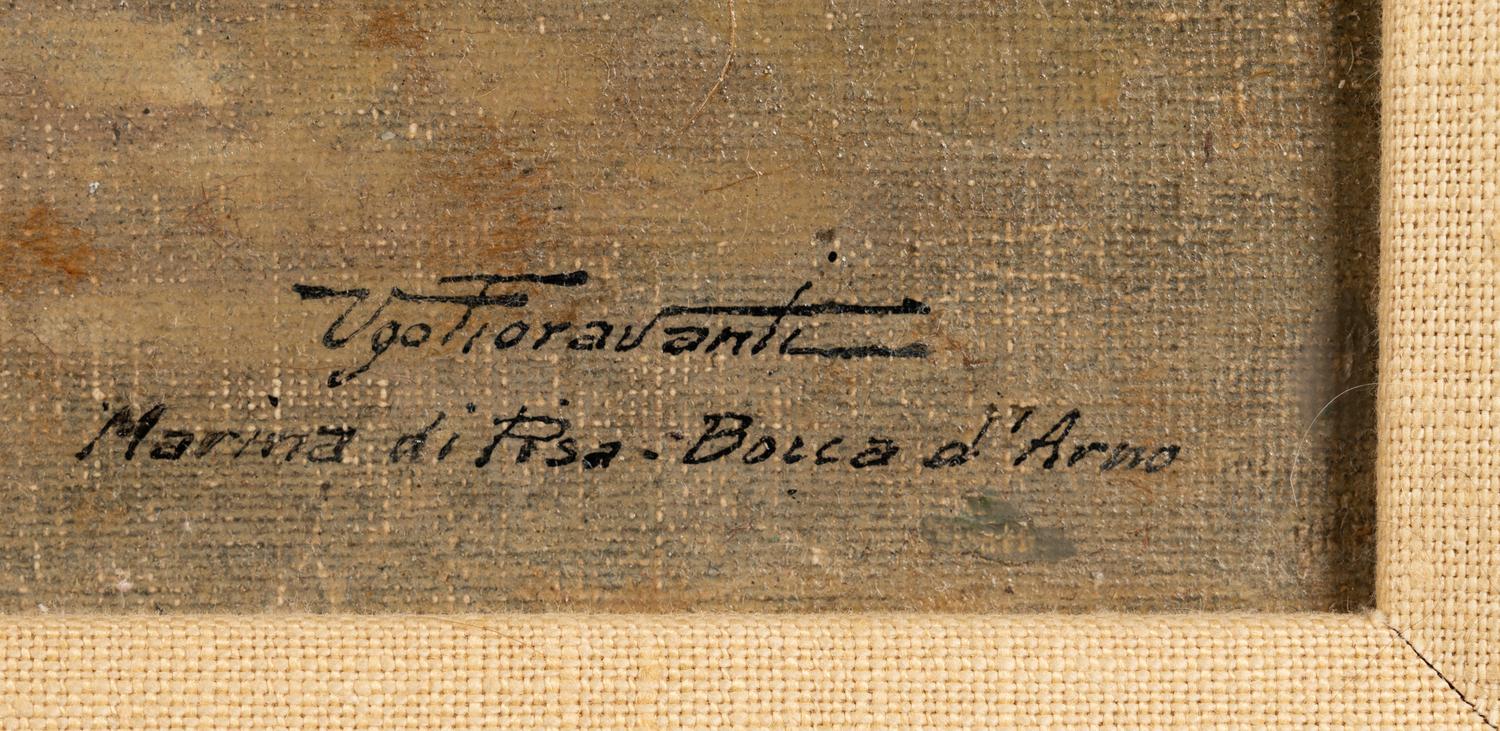 Ugo Fioravanti
Marina di Pisa - Bocca d'Arno